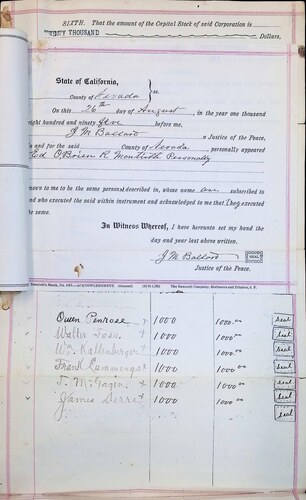 SIXTH. That the amount of the Capital Stock of said Corporation is
THOUSAND Dollars,
State of California,
County of Nevada } ss.
On this 26th day of August, in the year one thousand
eight hundred and ninety five before me,
J M Ballard a Justice of the Peace,
in and for the said County of Nevada, personally appeared
Ed O'Brien R. Montieth Personally
known to me to be the same person described in, whose name are subscribed to
and who executed the said within instrument and acknowledged to me that They executed
the same.
In Witness Whereof, I have hereunto set my hand the
day and year last above written.
J M Ballard SEAL
Justice of the Peace.
Owen Penrose + 1000 1000.00 seal
Walter 1000 1000.00 seal
Wm Kallenberger 1000 1000.00 seal
Frank Cummings + 1000 1000.00 seal
1000 1000.00 seal
James 1000 1000.00 seal
seal